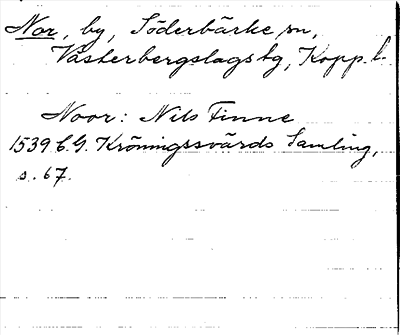 Nor, by, Söderbärke sn,
Västerbergslags tg, Kopp. l.
Noor: Nils Finne
1539 C. G. Kröningssvärds Samling,
s. 67.